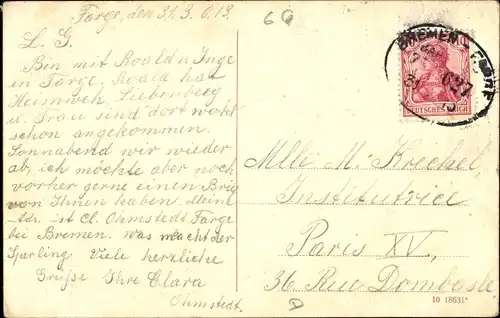 Farge, den 31. 3. 013.
L. G.
Bin mit Roald u. Inge
in Farge. Roald hat
Heimweh. Liebenberg
u. Frau sind dort wohl
schon angekommen.
Sonnabend wir wieder
ab, ich möchte aber noch
vorher gerne einen Brief
von Ihnen haben. Meine
Adr. ist Cl. Ohmstedt Farge
bei Bremen. Was macht der
Sperling. Viele herzliche
Grüße Ihre Clara
Ohmstedt.
69
BREMEN
DEUTSCHES REICH
Mlle M. Krechel,
Institutrice
Paris XV,
36 Rue Dombasle
10 18631*